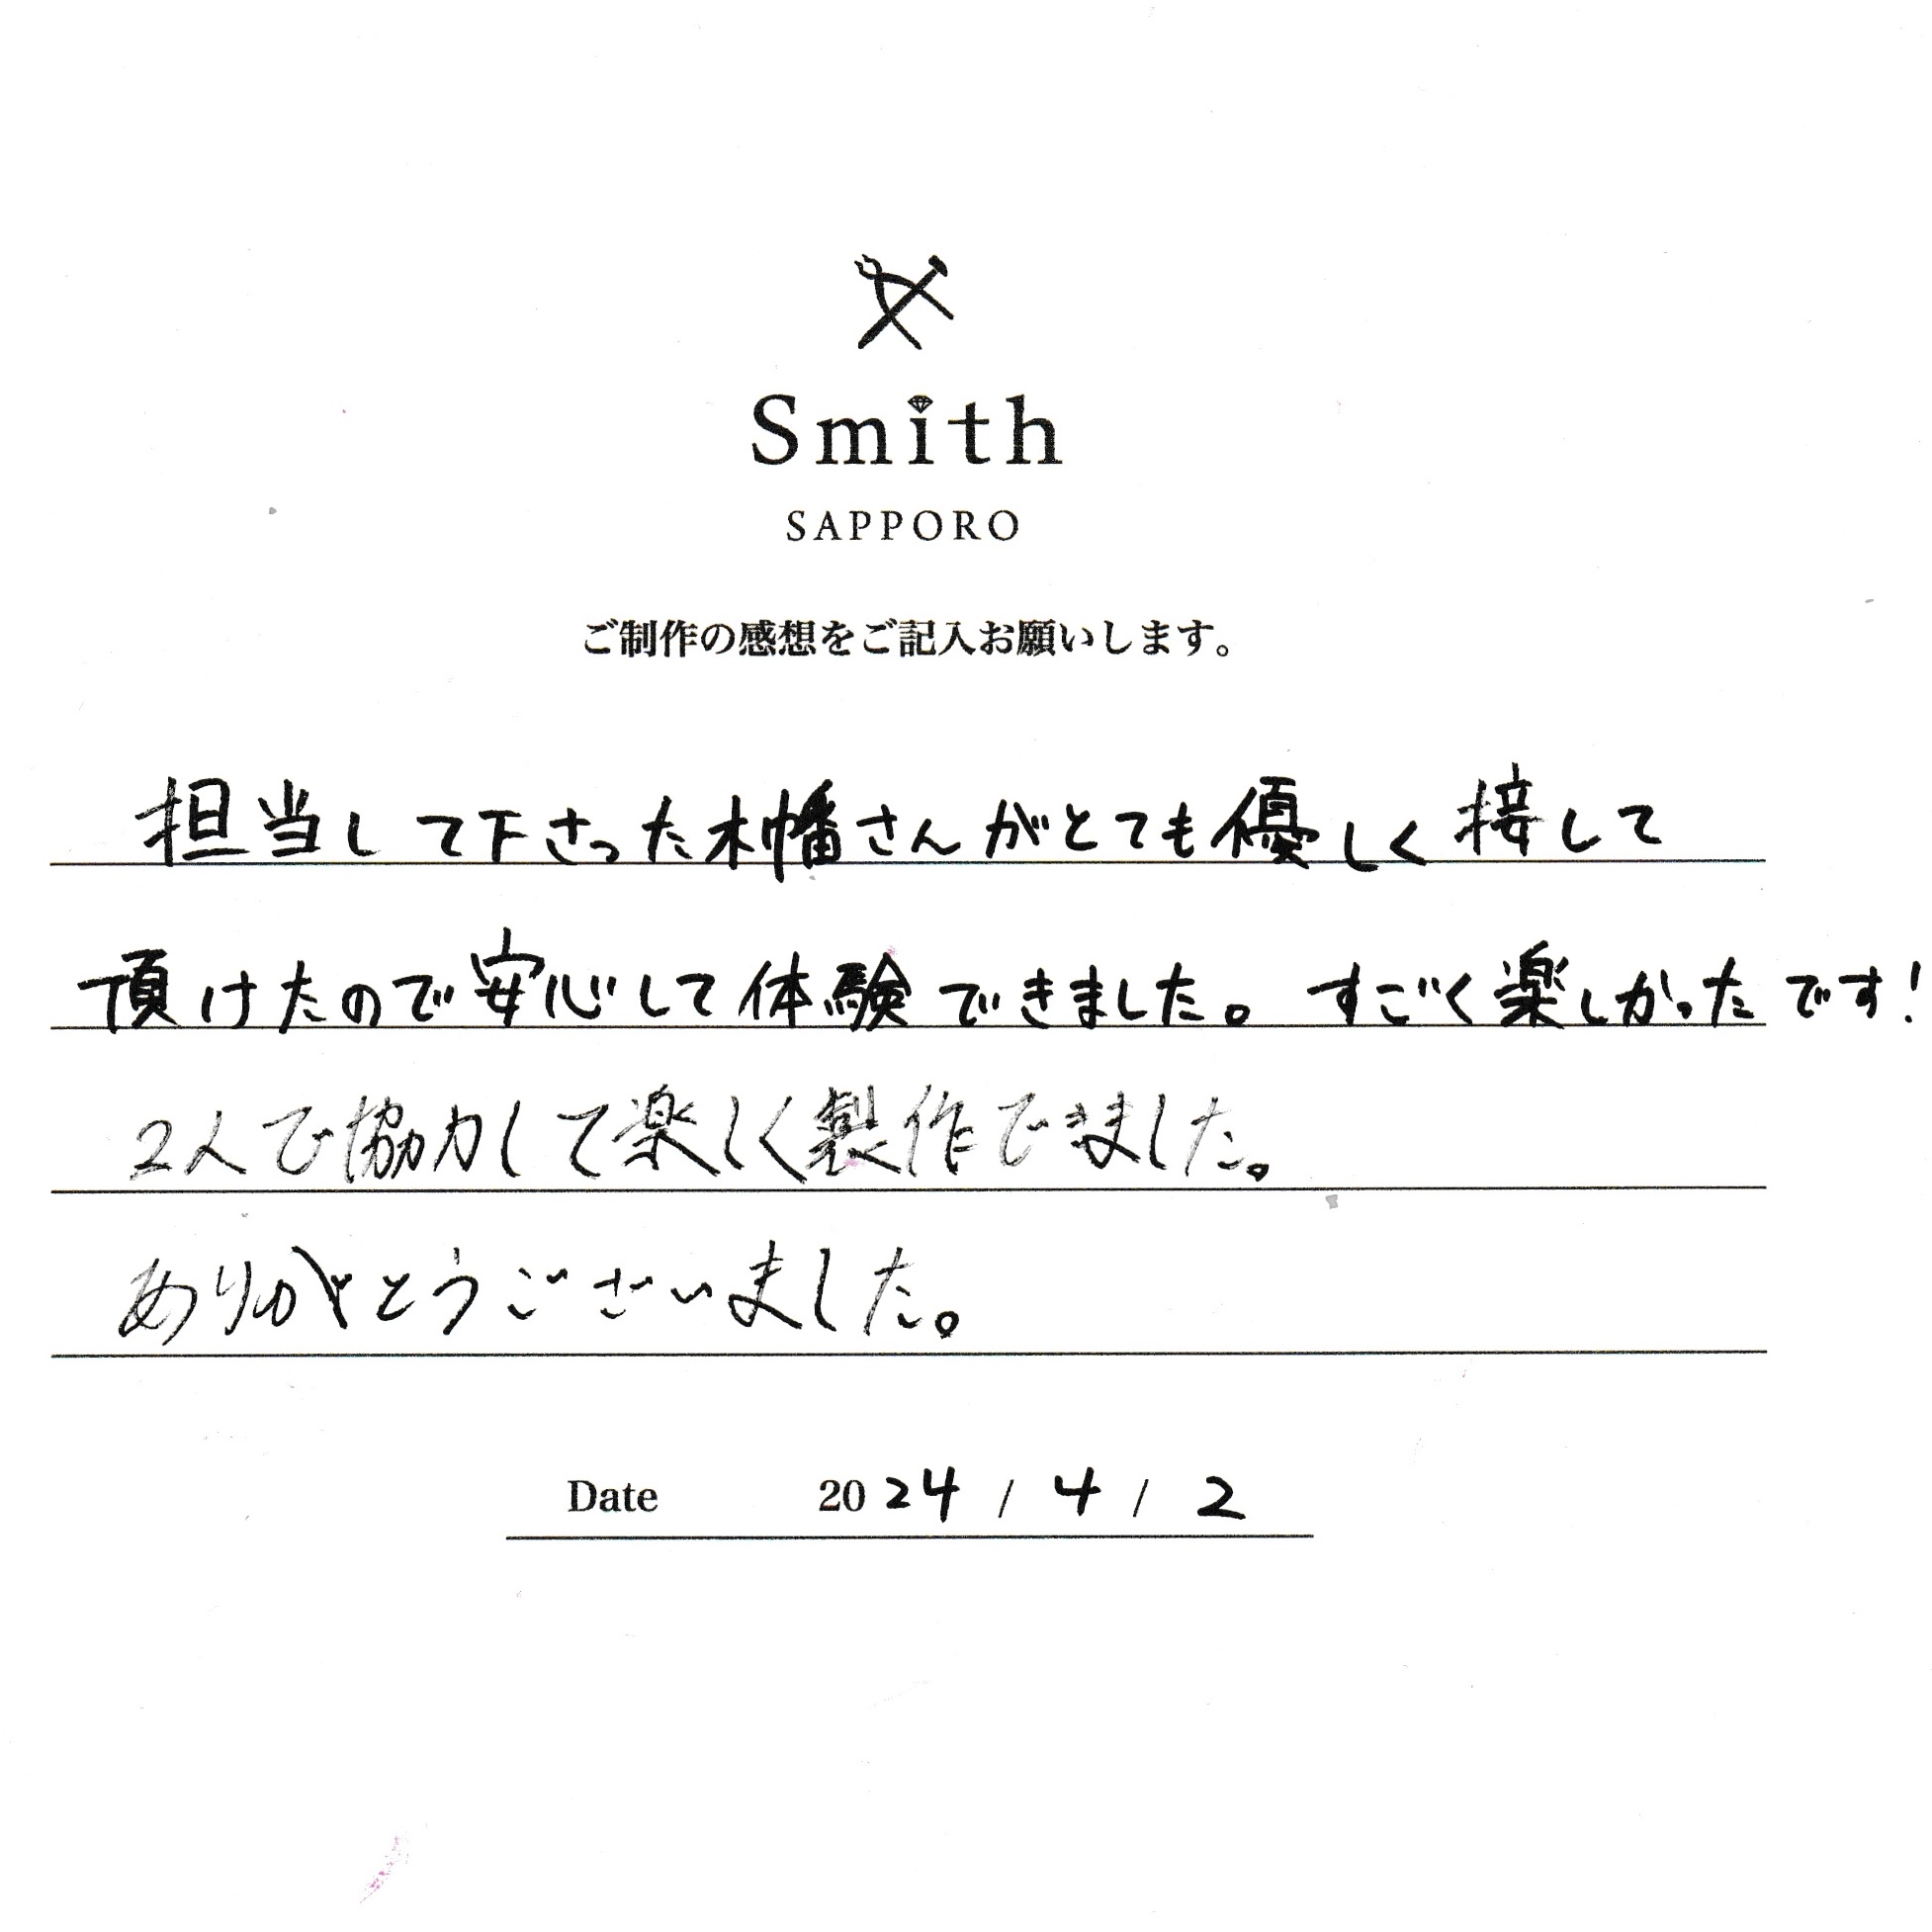 Smith
SAPPORO
ご制作の感想をご記入お願いします。
担当して下さった木幡さんがとても優しく接して
頂けたので安心して体験できました。すごく楽しかったです!
2人で協力して楽しく製作できました。
ありがとうございました。
Date 2024 / 4 / 2